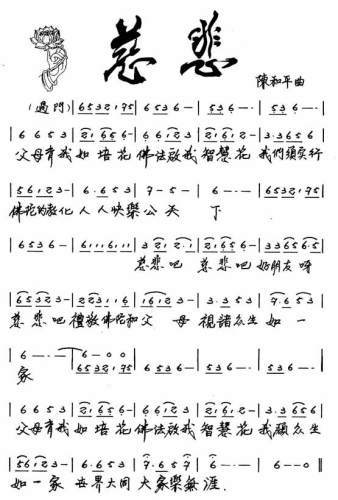 慈悲
陳和平曲
(過門) | 6532175 | 6 536 – | 536 – · | 536 – – · |
6 6 5 3 | 21656 – | 6 6 1 2 3 | 21612 – | 3·3 3 5 6 |
父母育我如培花 佛法啟我智慧花 我們須实行
56123 – | 6·6 5 3 | 7 – 5 – | 6 – – · | 6532175 |
佛陀的教化 人人快樂公天下
6 5 3 6 – | 61116111 | 3 212·1 | 21656 – | 336565 |
慈悲吧 慈悲吧 好朋友呀
65323 – | 223116 | 16123 – | 3·3 5 3 | 7·6 5 3 |
慈悲吧 禮敬佛陀和父母 視諸众生如一
6 – – · | 6 – 0 0
家
6532175 | 6 536 – | 536 – · | 536 – – · |
6 6 5 3 | 21656 – | 6 6 1 2 3 | 21612 – | 3·3 5 6 |
父母育我如培花 佛法啟我智慧花 我願众生
56123 – | 6·6 5 3 | 7·6 5 7 | 6 – – · | 6 – – 0 ||
如一家 世界大同 大家樂無涯.